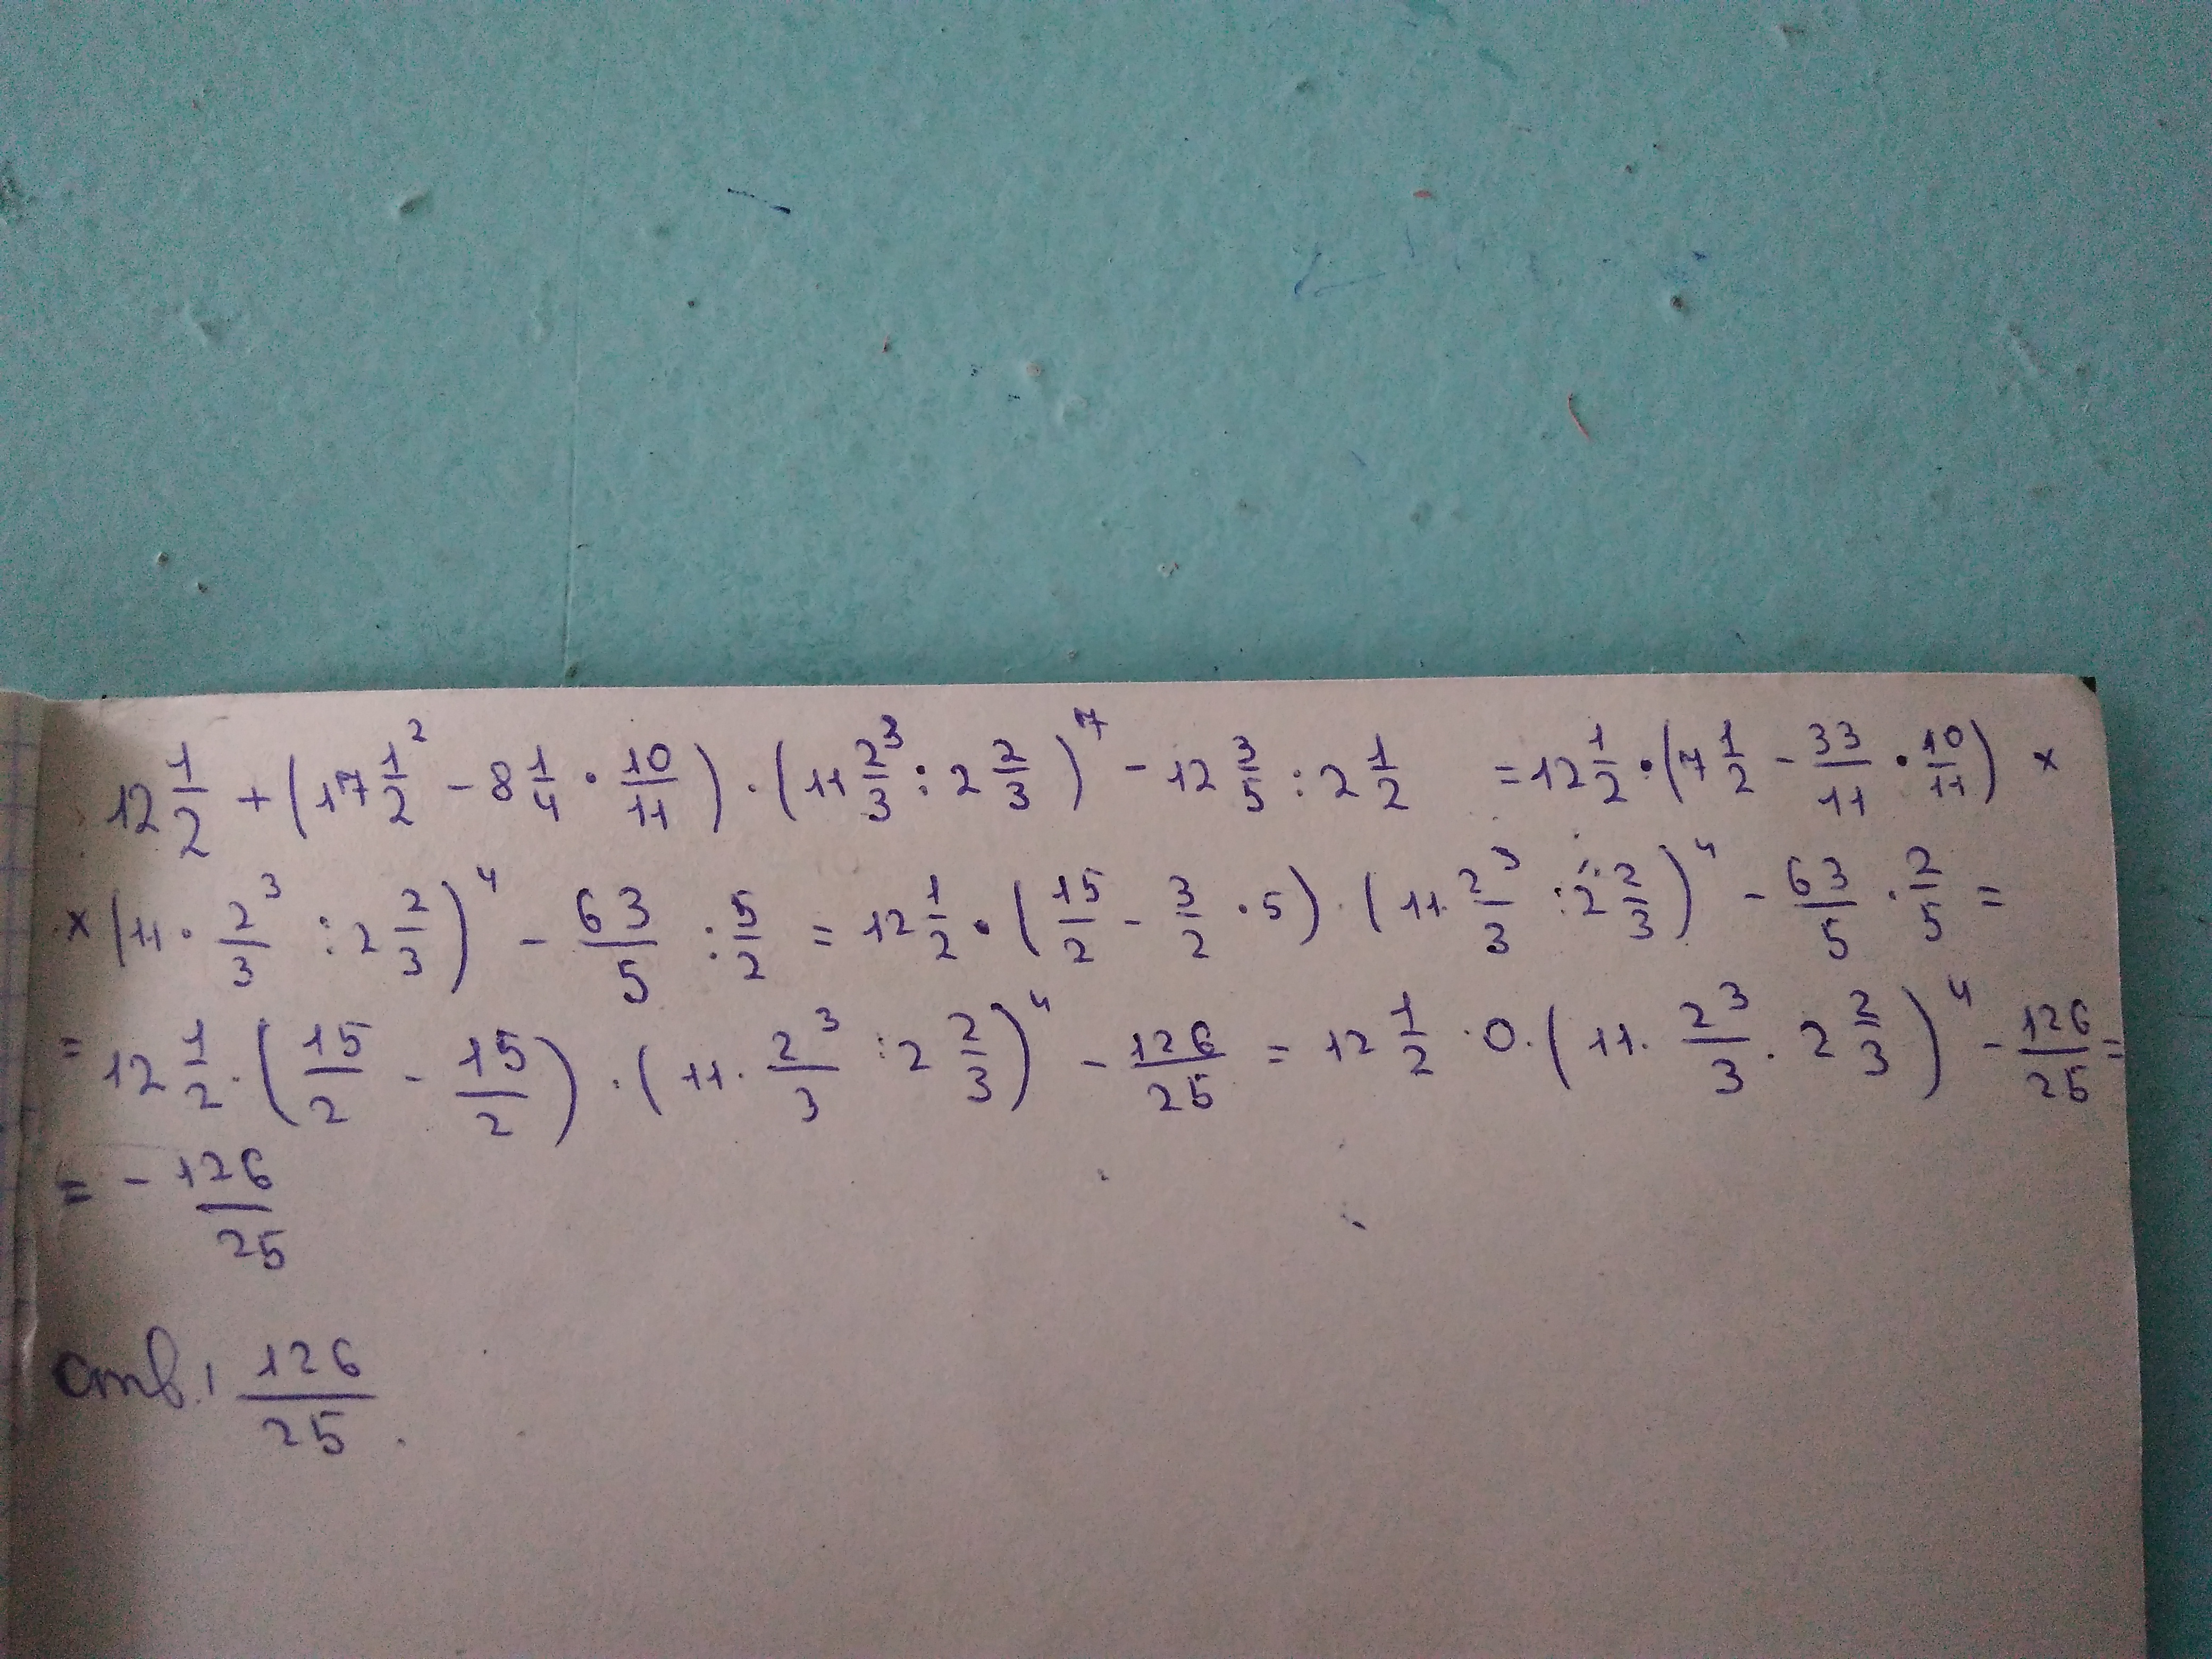 12 1/2 + (17 1/2² - 8 1/4 · 10/11) · (11 2/3³ : 2 2/3)⁷ - 12 3/5 : 2 1/2 = 12 1/2 · (7 1/2 - 33/11 · 10/11) ×
× (11 · 2³/3 : 2 2/3)⁴ - 63/5 : 5/2 = 12 1/2 · (15/2 - 3/2 · 5) · (11 · 2³/3 : 2 2/3)⁴ - 63/5 · 2/5 =
= 12 1/2 · (15/2 - 15/2) · (11 · 2³/3 : 2 2/3)⁴ - 126/25 = 12 1/2 · 0 · (11 · 2³/3 · 2 2/3)⁴ - 126/25 =
= - 126/25
отв.: 126/25.